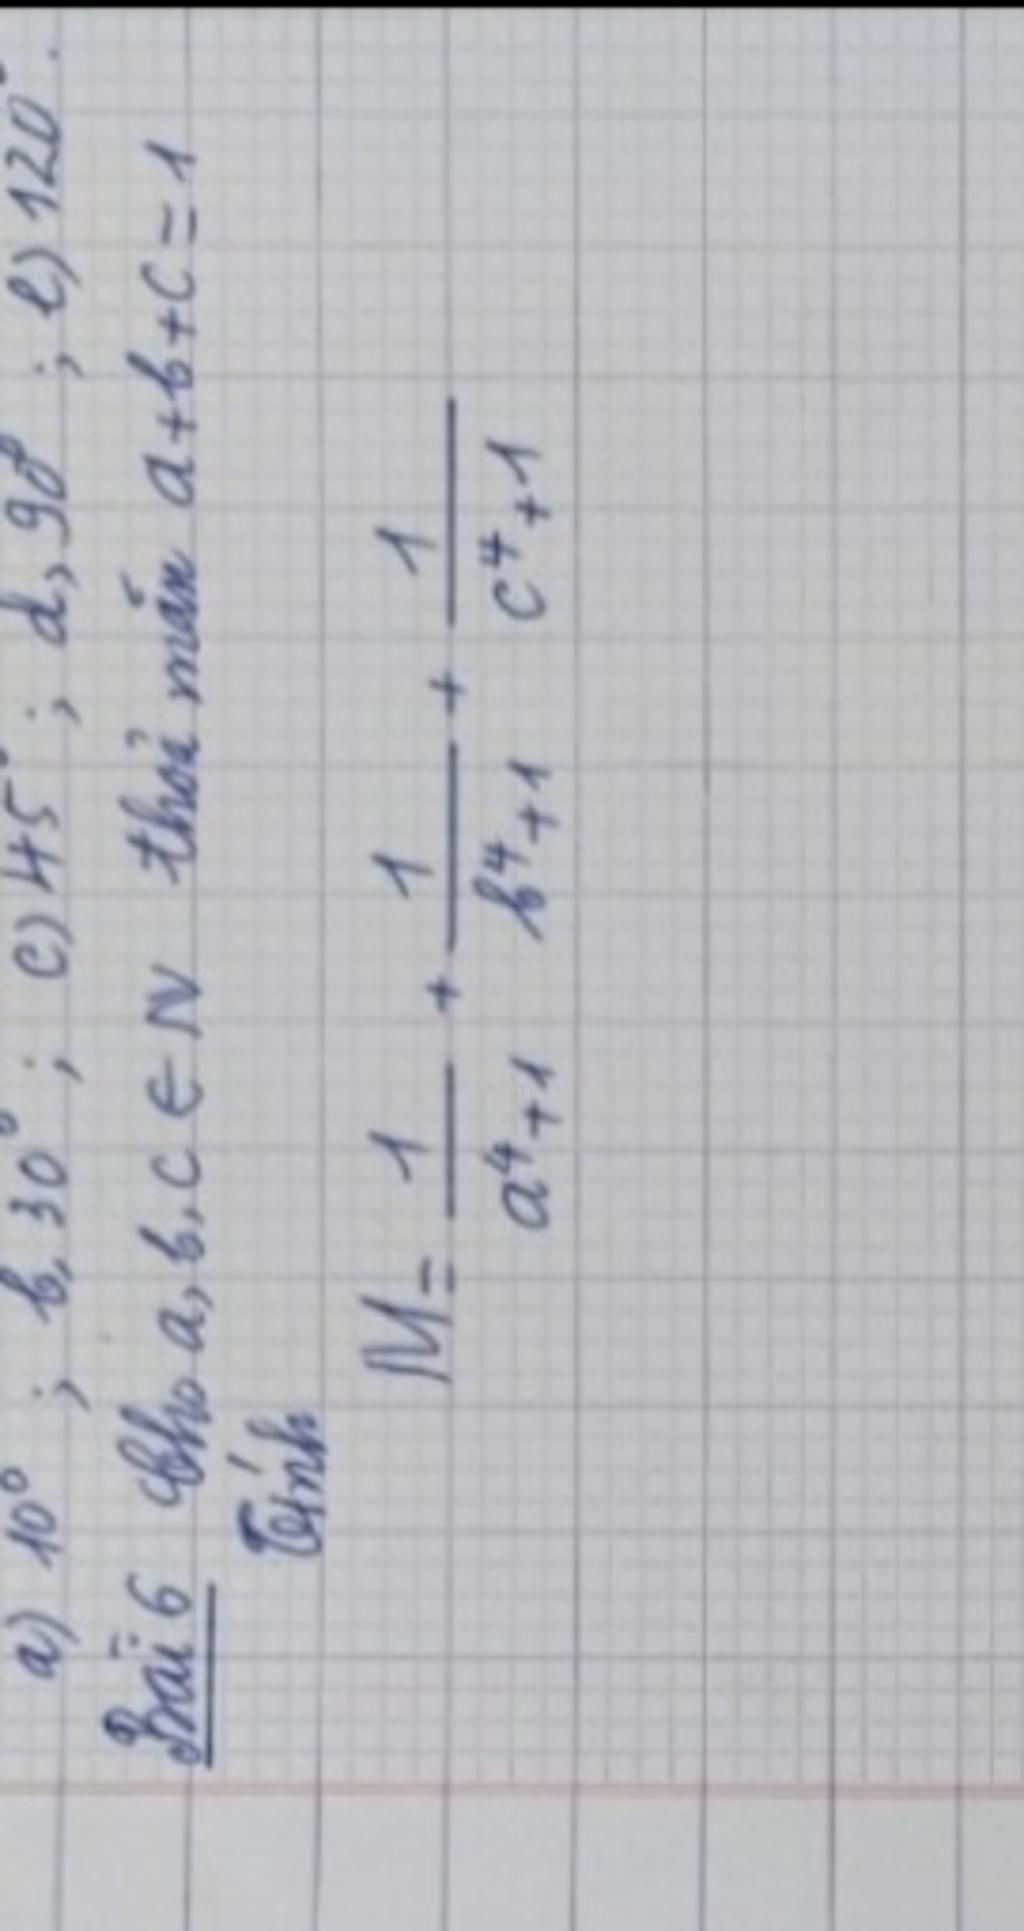 a) 10° ; b, 30° ; c) 45° ; d, 90° ; e) 120°.
Bài 6 Cho a, b, c ∈ N thỏa mãn a+b+c=1
Tính
M = 1/(a⁴+1) + 1/(b⁴+1) + 1/(c⁴+1)